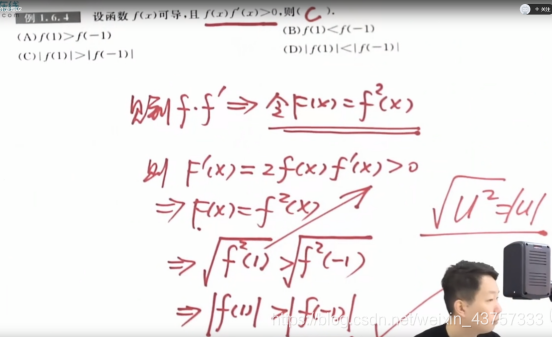 例1.6.4 设函数 f(x)可导,且 f(x)f′(x)>0,则( C ).
(A)f(1)>f(-1) (B)f(1)<f(-1)
(C)|f(1)|>|f(-1)| (D)|f(1)|<|f(-1)|
见到 f·f′ ⇒ 令F(x)=f²(x)
则 F′(x)=2f(x)f′(x)>0
⇒ F(x)=f²(x)
√u²=|u|
⇒ √f²(1) > √f²(-1)
⇒ |f(1)| > |f(-1)|
https://blog.csdn.net/weixin_43757333